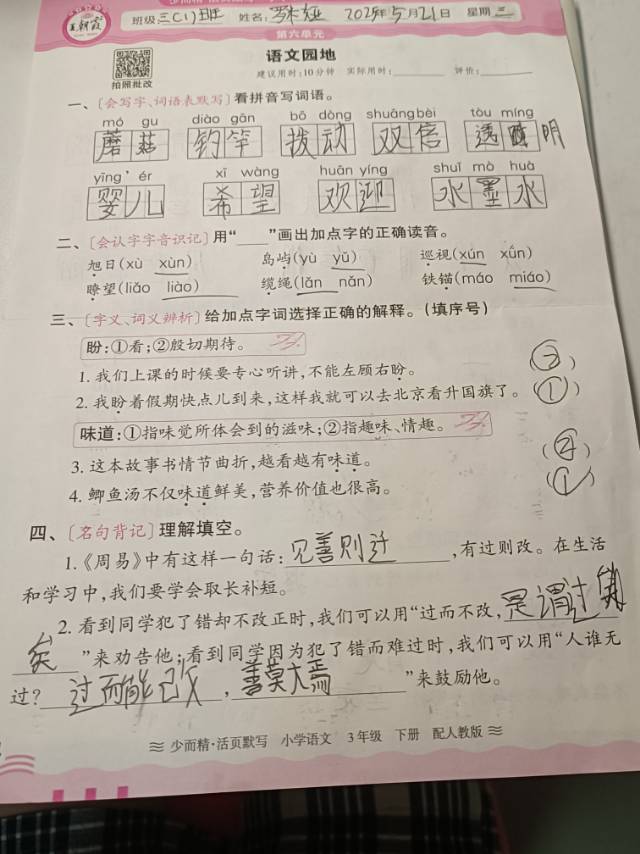 王朝霞
班级三(1)班 姓名: 2025年5月21日 星期三
第六单元
语文园地
拍照批改
建议用时:10分钟 实际用时: 评价:
一、〔会写字、词语表默写〕看拼音写词语。
mó gu diào gān bō dòng shuāng bèi tòu míng
蘑菇 钓竿 拨动 双倍 透 明
yīng ér xī wàng huān yíng shuǐ mò huà
婴儿 希望 欢迎 水墨水
二、〔会认字字音识记〕用“____”画出加点字的正确读音。
旭日(xù xùn) 岛屿(yù yǔ) 巡视(xún xǘn)
瞭望(liǎo liào) 缆绳(lǎn nǎn) 铁锚(máo miáo)
三、〔字义、词义辨析〕给加点字词选择正确的解释。(填序号)
盼:①看;②殷切期待。
1. 我们上课的时候要专心听讲,不能左顾右盼。 (②)
2. 我盼着假期快点儿到来,这样我就可以去北京看升国旗了。 (①)
味道:①指味觉所体会到的滋味;②指趣味、情趣。
3. 这本故事书情节曲折,越看越有味道。 (②)
4. 鲫鱼汤不仅味道鲜美,营养价值也很高。 (①)
四、〔名句背记〕理解填空。
1.《周易》中有这样一句话:见善则迁,有过则改。在生活
和学习中,我们要学会取长补短。
2. 看到同学犯了错却不改正时,我们可以用“过而不改,是谓过
矣”来劝告他;看到同学因为犯了错而难过时,我们可以用“人谁无
过?过而能改,善莫大焉”来鼓励他。
少而精·活页默写 小学语文 3年级 下册 配人教版